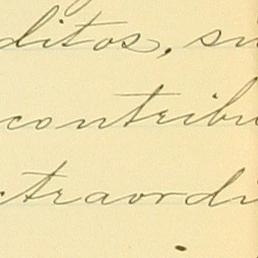 ditos, su
contribu
traordi